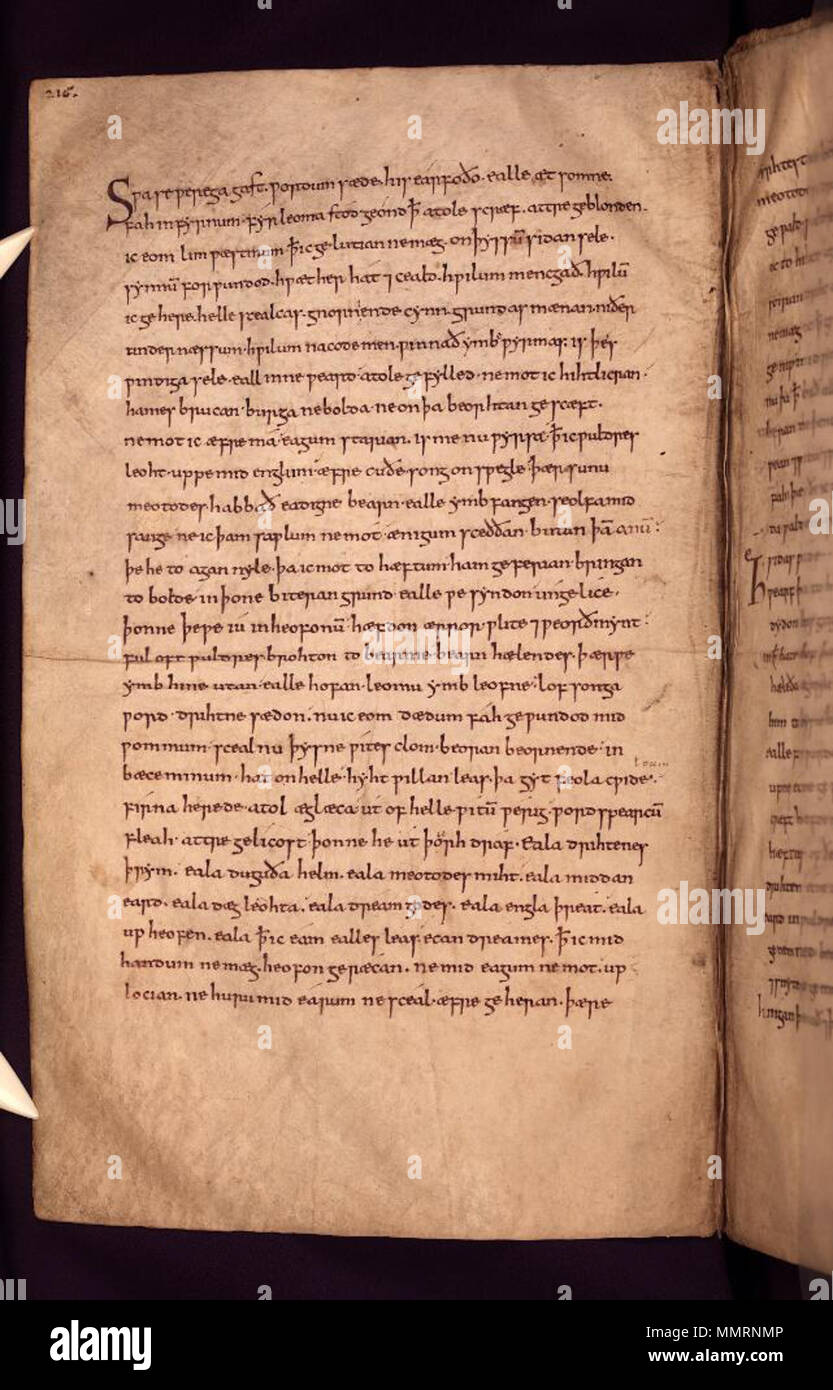 216.
Sƿa se ƿerega gast. ƿordum sæde. his earfoðo. ealle æt somne.
fah in fyrnum. fyr leoma stod. geond þ̄ atole scræf. attre geblonden.
ic eom lim ƿæstmum þ̄ ic ge lutian ne mæg. on þyssū sidan sele.
synnū for ƿundod. hƿæt her hat ⁊ ceald. hƿilum mencgað. hƿilū
ic ge here. helle scealcas. gnornende cynn. grundas mænan. niðer
under næssum. hƿilum nacode men. ƿinnað ymb ƿyrmas. is þes
ƿindiga sele. eall inne ƿeard. atole ge fylled. ne mot ic hihtlicran.
hames brucan. burga ne bolda. ne on þa beorhtan ge scæft.
ne mot ic æfre ma. eagum starian. is me nu ƿyrsa. þ̄ ic ƿuldres
leoht. uppe mid englum. æfre cuðe. song on sƿegle. þær sunu
meotodes. habbað eadigne bearn. ealle ymb fangen. seolfa mid
sange. ne ic þam saƿlum ne mot. ænigum sceððan. butun þā anū.
þe he to agan nyle. þa ic mot to hæftum. ham ge ferian. bringan
to bolde. in þone biterian grund. ealle ƿe syndon ungelice.
þonne þe ƿe iu in heofonū. hæfdon ærror. ƿlite ⁊ ƿeorðmynt.
ful oft ƿuldres. brohton to bearme bearn hælendes. þær ƿe
ymb hine utan. ealle hofan. leomu ymb leofne. lof songa
ƿord. drihtne sædon. nu ic eom dædum fah ge ƿundod mid
ƿommum. sceal nu þysne ƿites clom. beoran beornende. in
bæce minum. hat on helle. hyht ƿillan leas. þa gyt feola cƿide.
firina herede. atol æglæca. ut of helle. ƿitū ƿerig. ƿord spearcū
fleah. attre gelicost þonne he ut þorh draf. Eala drihtenes
þrym. eala duguða helm. eala meotodes miht. eala middan
eard. eala dæg leohta. eala dream godes. eala engla þreat. eala
up heofen. eala þ̄ ic eam ealles leas. ecan dreames. þ̄ ic mid
handum ne mæg. heofon geræcan. ne mid eagum ne mot. up
locian. ne huru mid earum ne sceal. æfre ge heran. þære
alamy
Image ID: MMRNMP
www.alamy.com